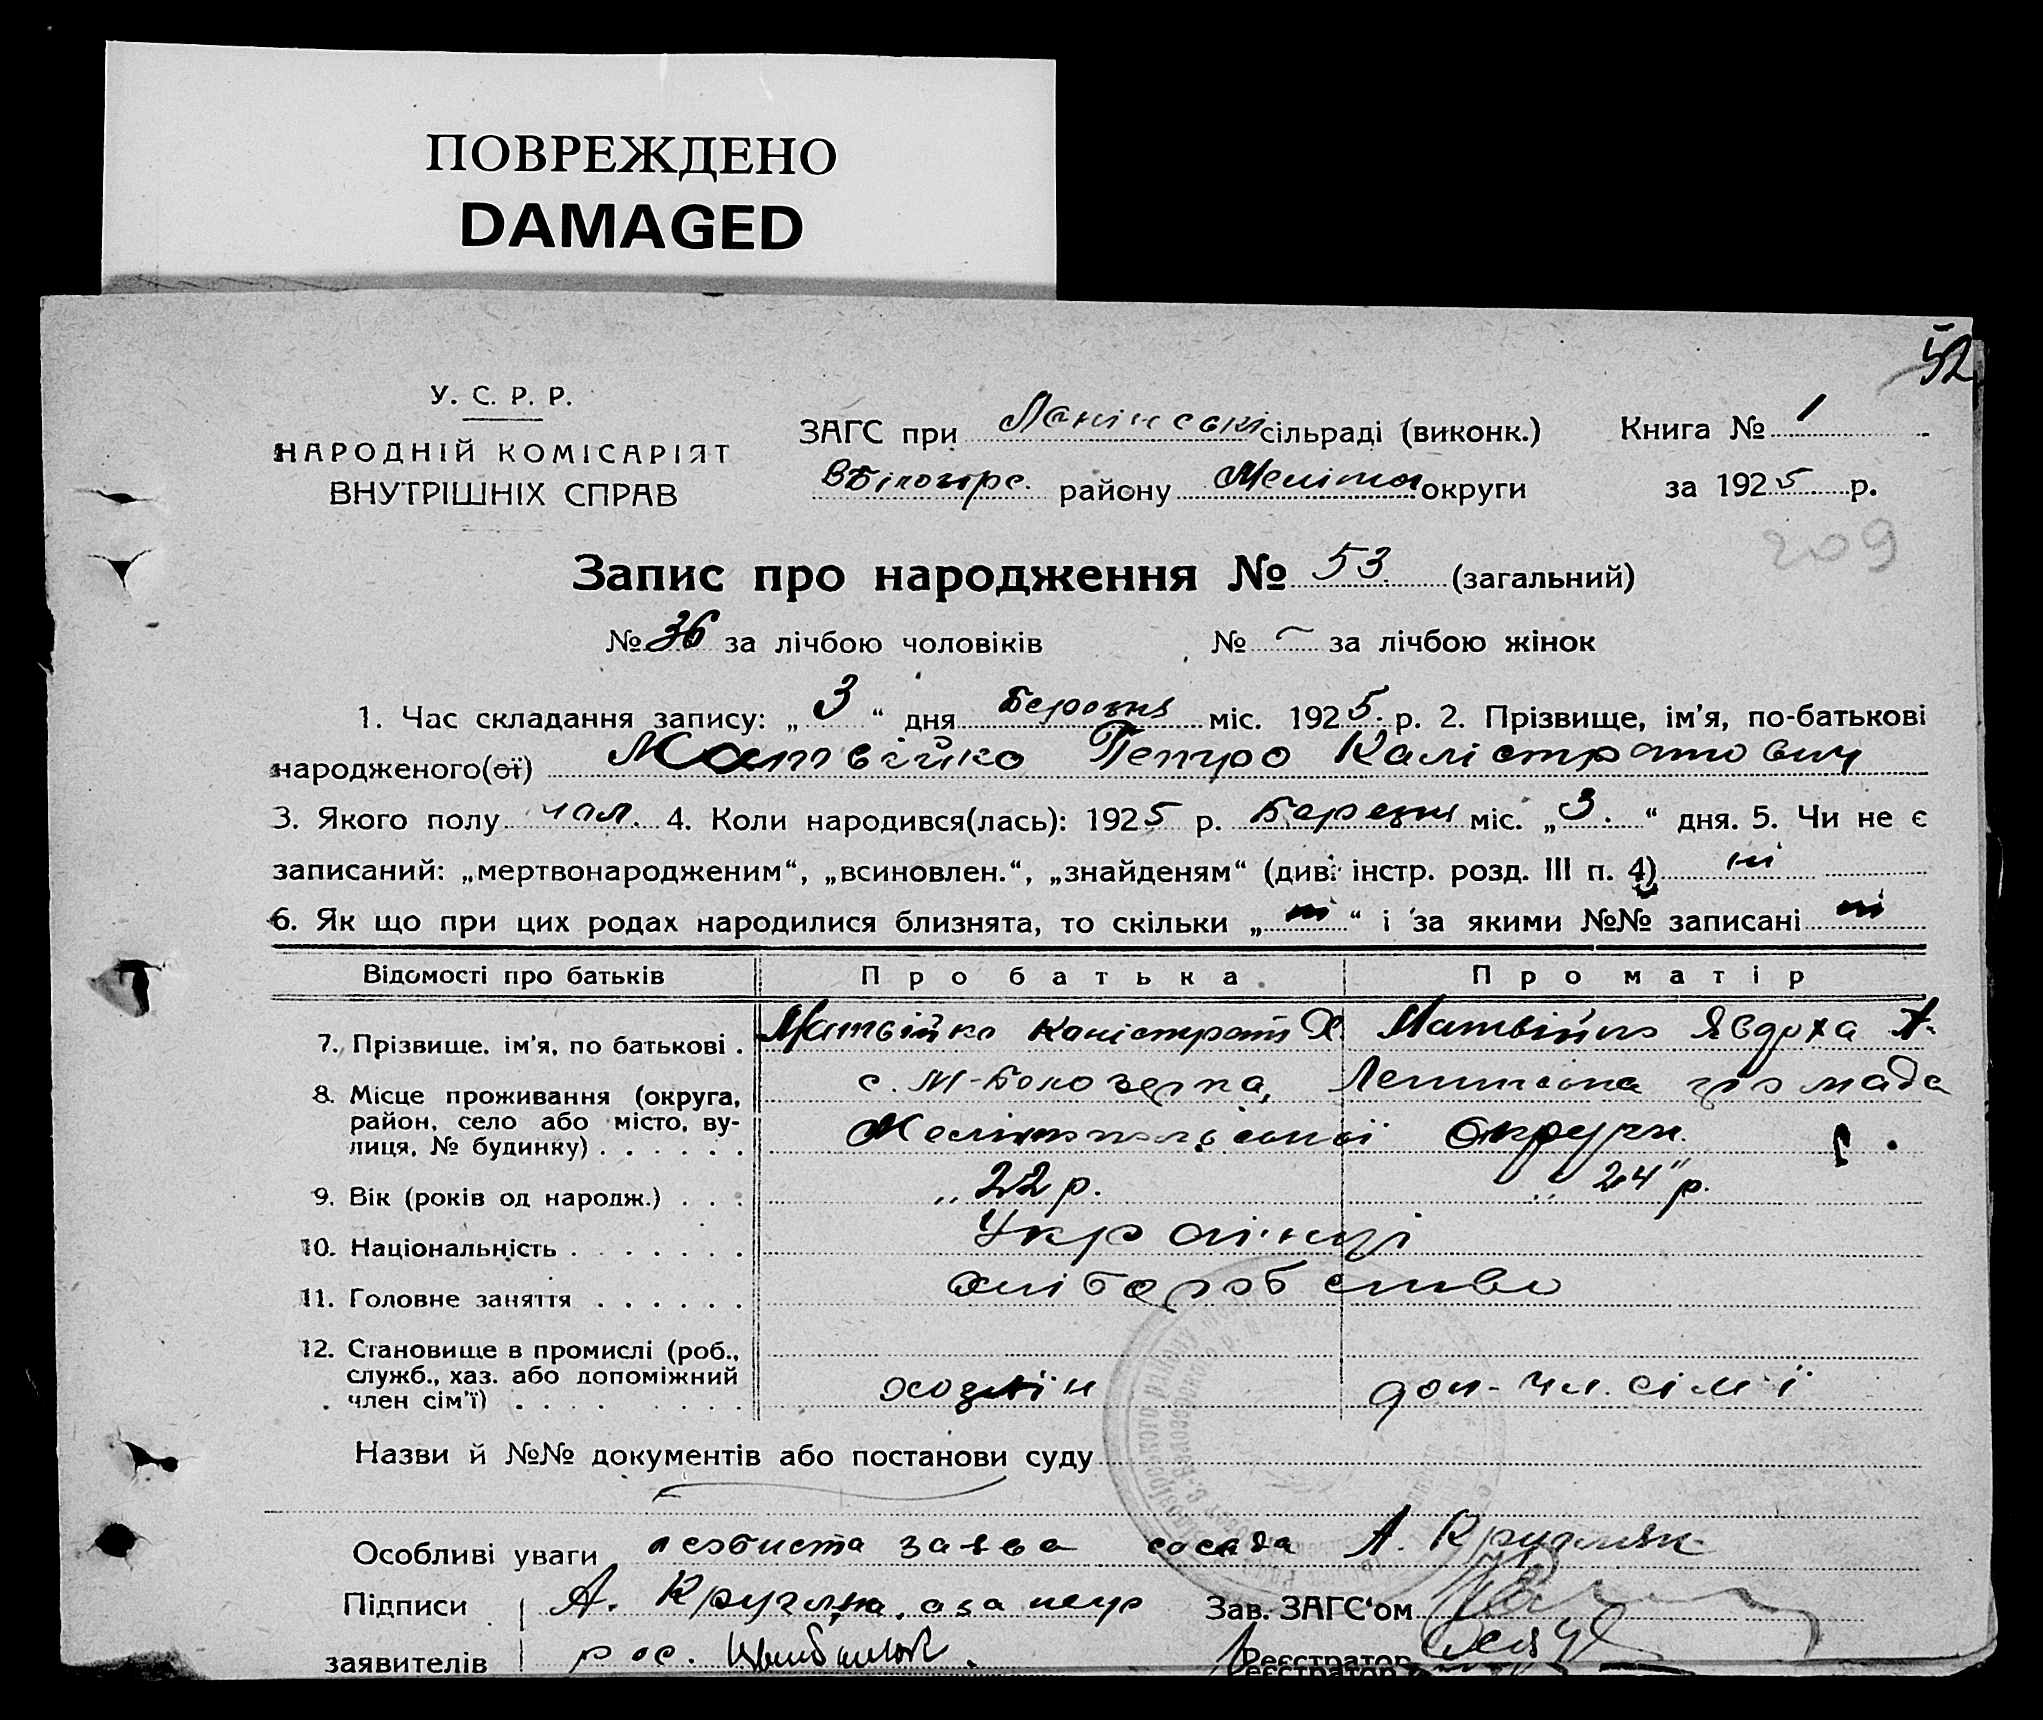 ПОВРЕЖДЕНО
DAMAGED
52
У. С. Р. Р.
НАРОДНІЙ КОМІСАРІЯТ
ВНУТРІШНІХ СПРАВ
ЗАГС при сільраді (виконк.) Книга № 1
району Меліто округи за 1925 р.
209
Запис про народження № 53 (загальний)
№ 36 за лічбою чоловіків № — за лічбою жінок
1. Час складання запису: „ 3 “ дня Березня міс. 1925 р. 2. Прізвище, ім’я, по-батькові
народженого(ої) Матвійко Петро Калістратович
3. Якого полу чол. 4. Коли народився(лась): 1925 р. Березня міс. „ 3. “ дня. 5. Чи не є
записаний: „мертвонародженим“, „всиновлен.“, „знайденям“ (див. інстр. розд. III п. 4) ні
6. Як що при цих родах народилися близнята, то скільки „ ні “ і за якими №№ записані ні
Відомості про батьків Про батька Про матір
7. Прізвище, ім’я, по батькові . Матвійко Калістрат Х. Матвійко Явдоха А.
8. Місце проживання (округа, с. М-Білозерка, громада
район, село або місто, ву-
лиця, № будинку) . . . . . . Мелітопольської Округи.
9. Вік (років од народж.) . . . „ 22 р. „ 24 " р.
10. Національність . . . . . . . Українці
11. Головне заняття . . . . . . Хліборобство
12. Становище в промислі (роб.,
служб., хаз. або допоміжний
член сім’ї) . . . . . . . . хозяїн доп-чл. сім'ї
Назви й №№ документів або постанови суду
Особливі уваги особиста заява сосада А. Кругляк
Підписи А. Кругляк, а за неур Зав. ЗАГС‘ом
заявителів рос. Реєстратор
Реєстратор